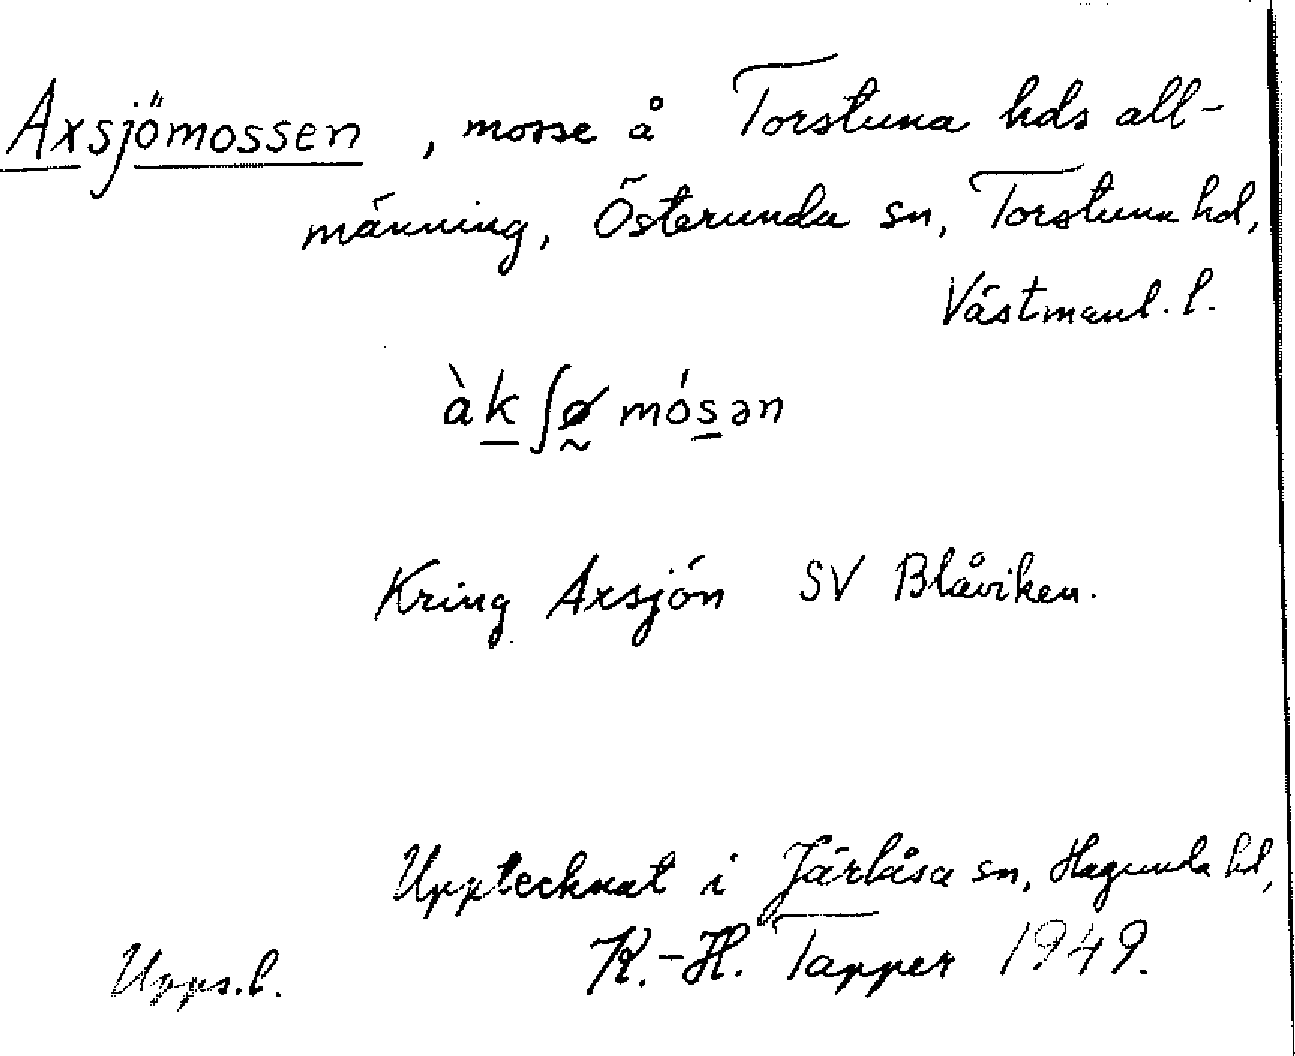 Axsjömossen, mosse å Torstuna hds all-
männing, Österunda sn, Torstuna hd,
Västmanl. l.
àk̲ʃø̰ mós̲ən
Kring Axsjön SV Blåviken.
Upptecknat i Järlåsa sn, Hagunda hd,
Upps.l. K.-H. Tapper 1949.